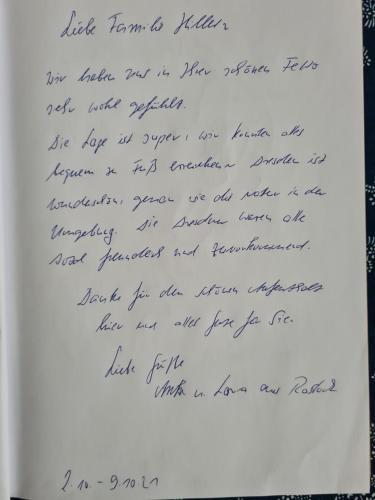 Liebe Familie
wir haben uns in Ihrer schönen FeWo
sehr wohl gefühlt.
Die Lage ist super, wir konnten alles
bequem zu Fuß erreichen. Dresden ist
wunderschön, genau wie die Natur in der
Umgebung. Die Dresdner waren alle
freundlich und zuvorkommend.
Danke für den schönen Aufenthalt
hier und alles Gute für Sie.
Liebe Grüße
u. aus Rostock
2.10. - 9.10.21